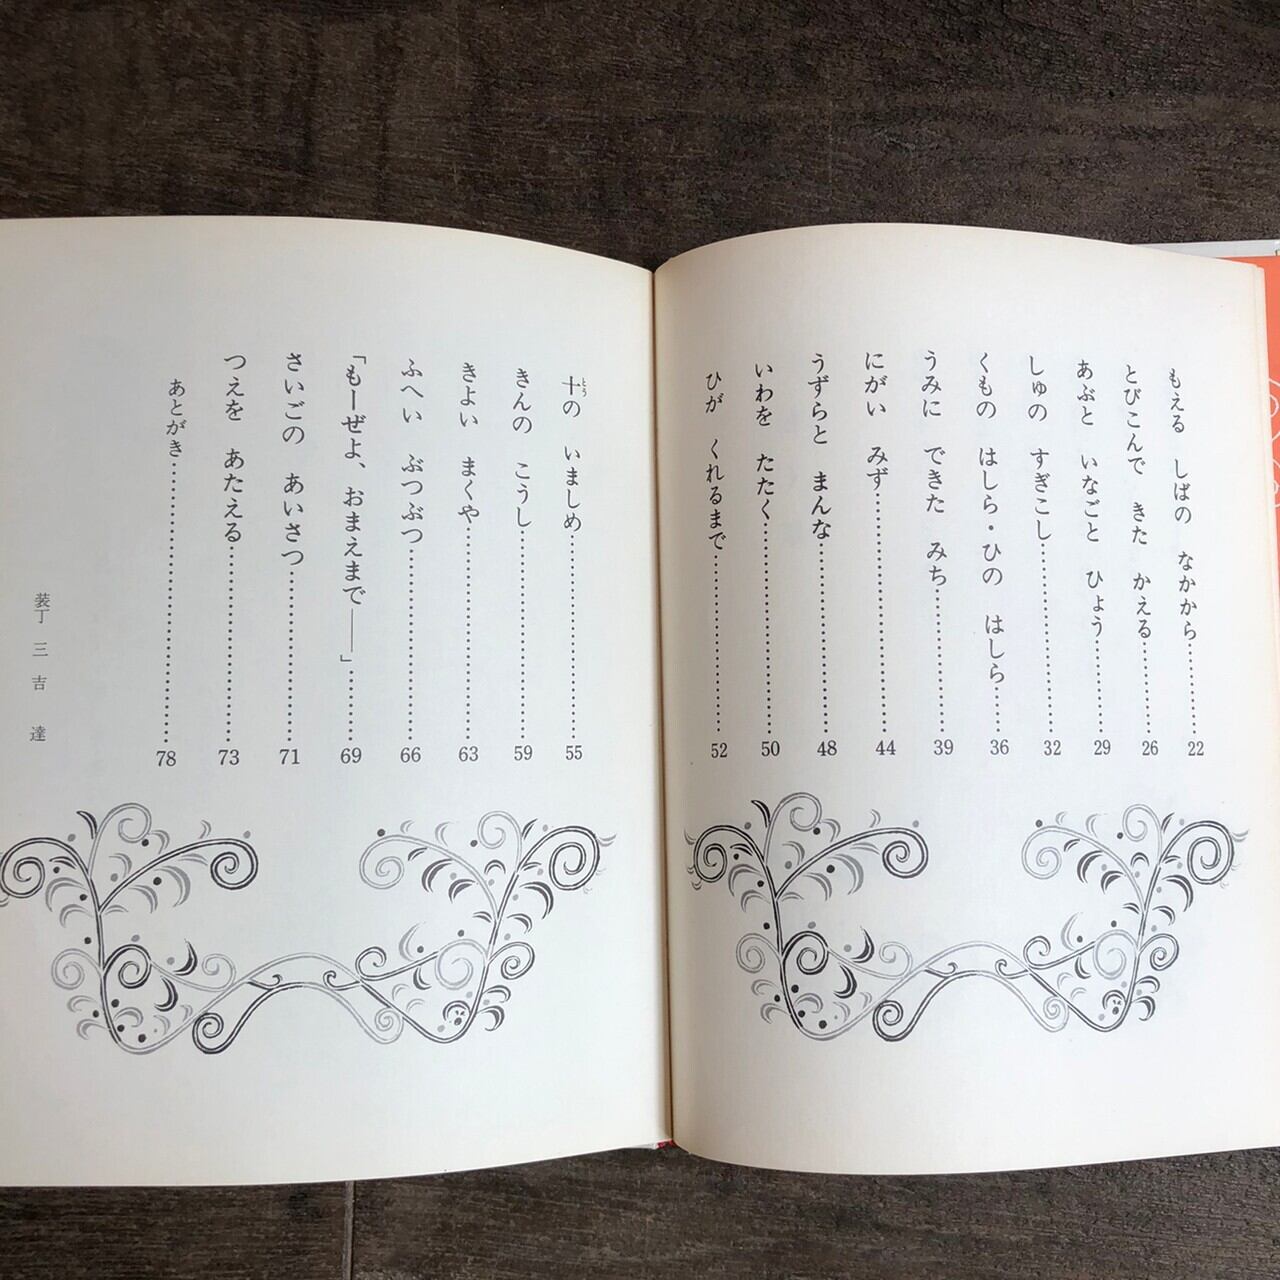 もえる しばの なかから……………22
とびこんで きた かえる……………26
あぶと いなごと ひょう……………29
しゅの すぎこし……………32
くもの はしら・ひの はしら……………36
うみに できた みち……………39
にがい みず……………44
うずらと まんな……………48
いわを たたく……………50
ひが くれるまで……………52
十の いましめ……………55
とう
きんの こうし……………59
きよい まくや……………63
ふへい ぶつぶつ……………66
「もーぜよ、おまえまで――」……………69
さいごの あいさつ……………71
つえを あたえる……………73
あとがき……………78
装丁 三吉 達